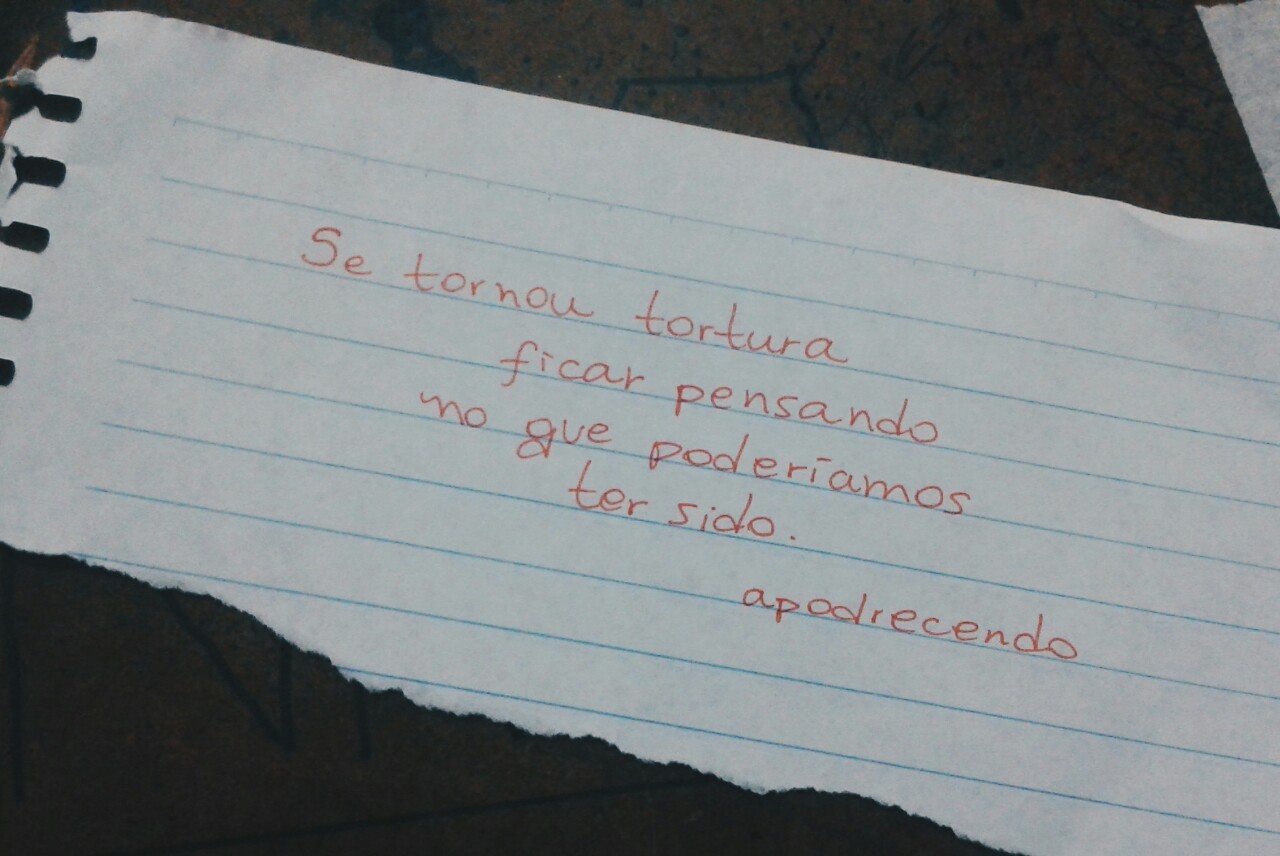 Se tornou tortura
ficar pensando
no que poderíamos
ter sido.
apodrecendo